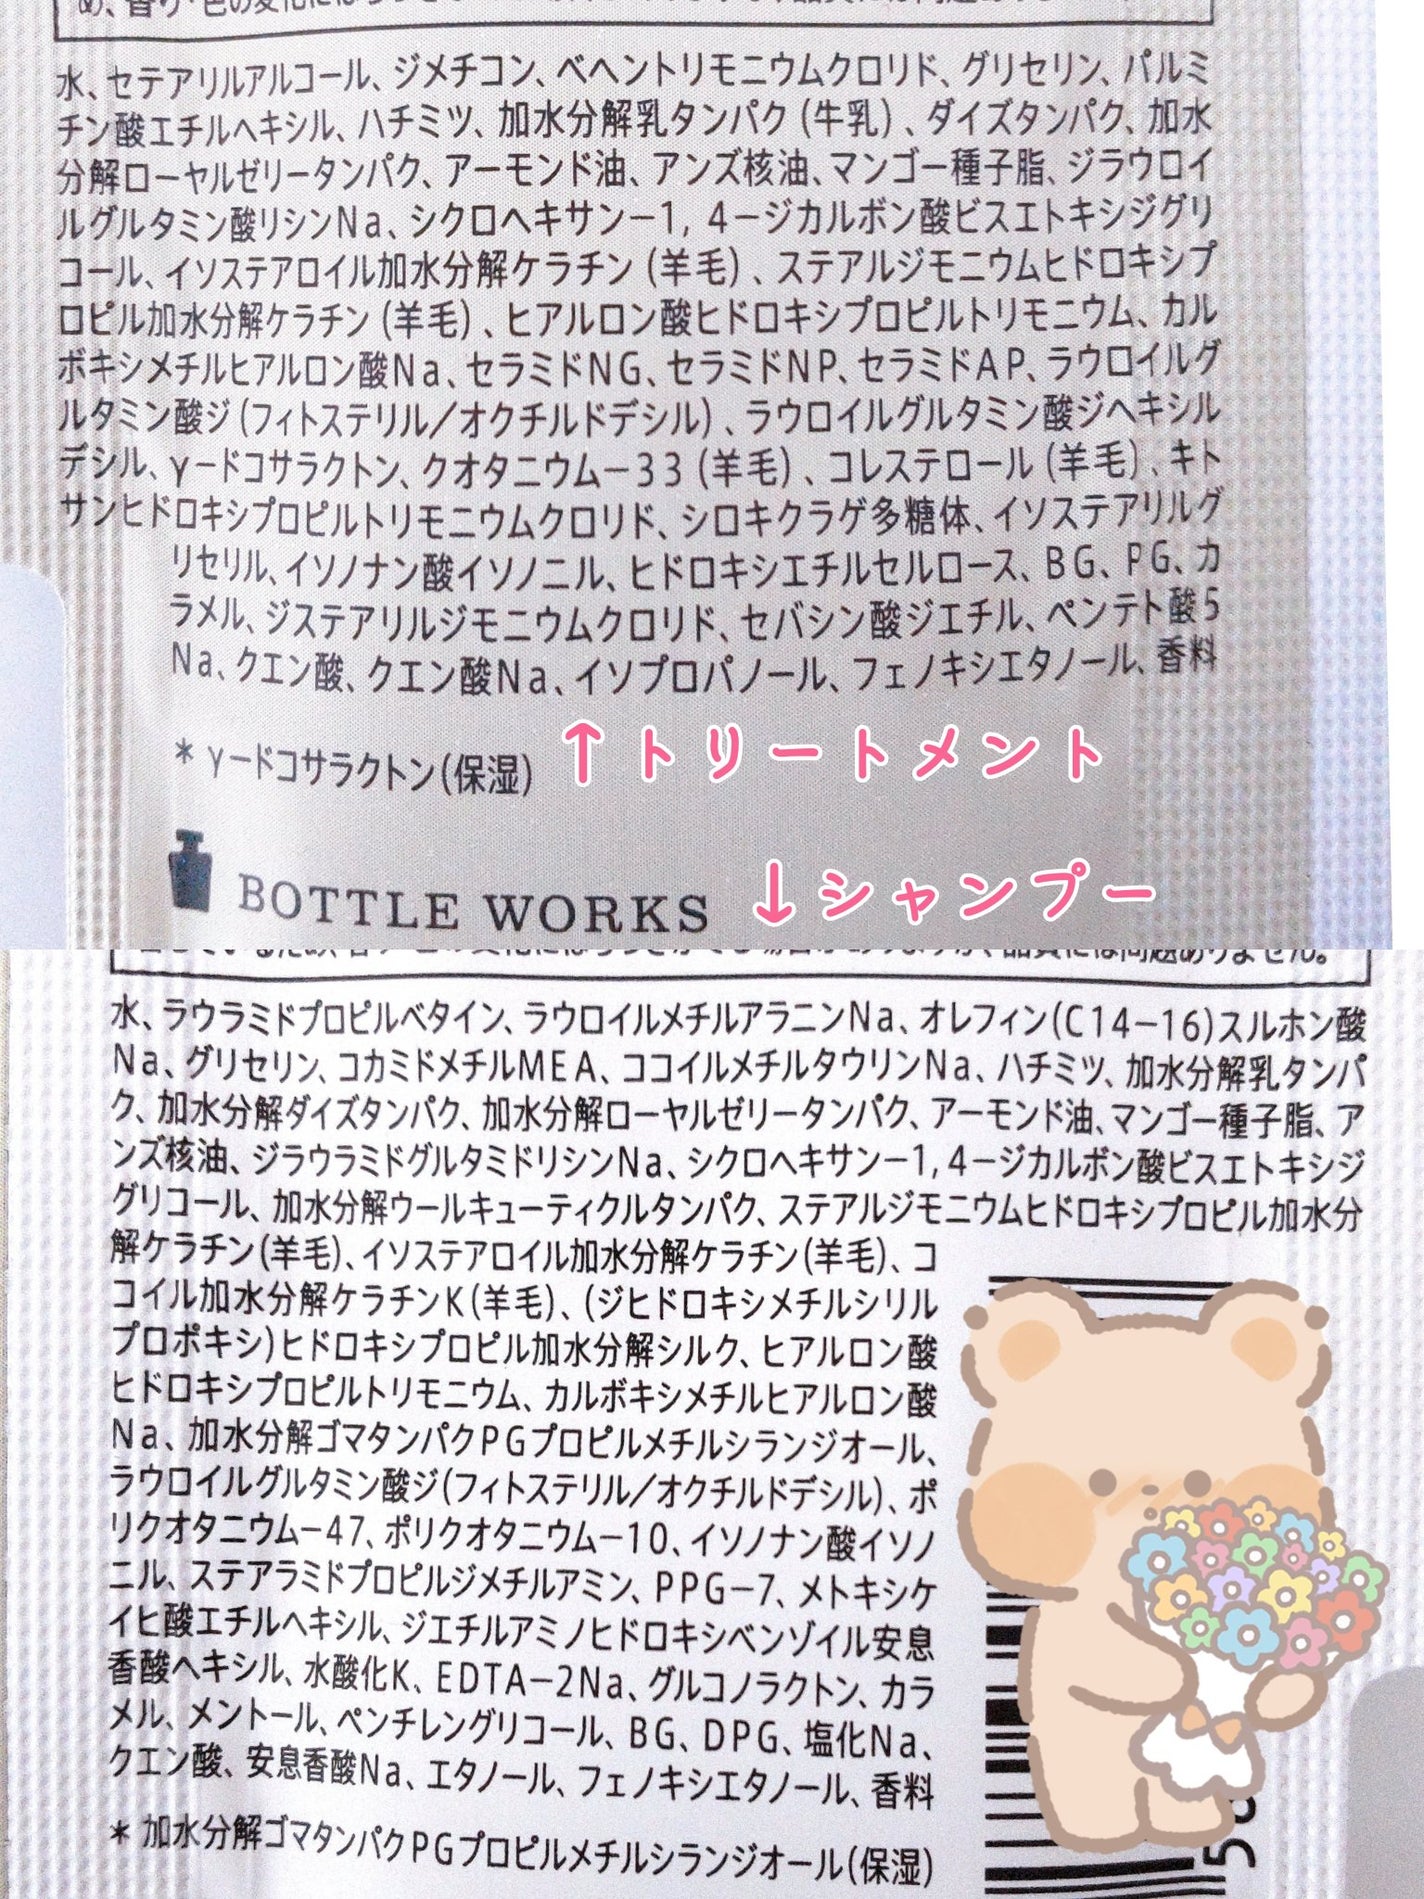 水、セテアリルアルコール、ジメチコン、ベヘントリモニウムクロリド、グリセリン、パルミ
チン酸エチルヘキシル、ハチミツ、加水分解乳タンパク（牛乳）、ダイズタンパク、加水
分解ローヤルゼリータンパク、アーモンド油、アンズ核油、マンゴー種子脂、ジラウロイ
ルグルタミン酸リシンNa、シクロヘキサン－1, 4－ジカルボン酸ビスエトキシジグリ
コール、イソステアロイル加水分解ケラチン（羊毛）、ステアルジモニウムヒドロキシプ
ロピル加水分解ケラチン（羊毛）、ヒアルロン酸ヒドロキシプロピルトリモニウム、カル
ボキシメチルヒアルロン酸Na、セラミドNG、セラミドNP、セラミドAP、ラウロイルグ
ルタミン酸ジ（フィトステリル／オクチルドデシル）、ラウロイルグルタミン酸ジヘキシル
デシル、γ－ドコサラクトン、クオタニウム－33（羊毛）、コレステロール（羊毛）、キト
サンヒドロキシプロピルトリモニウムクロリド、シロキクラゲ多糖体、イソステアリルグ
リセリル、イソノナン酸イソノニル、ヒドロキシエチルセルロース、BG、PG、カ
ラメル、ジステアリルジモニウムクロリド、セバシン酸ジエチル、ペンテト酸5
Na、クエン酸、クエン酸Na、イソプロパノール、フェノキシエタノール、香料
＊γ－ドコサラクトン（保湿）
↑トリートメント
BOTTLE WORKS
↓シャンプー
水、ラウラミドプロピルベタイン、ラウロイルメチルアラニンNa、オレフィン(C14－16)スルホン酸
Na、グリセリン、コカミドメチルMEA、ココイルメチルタウリンNa、ハチミツ、加水分解乳タンパ
ク、加水分解ダイズタンパク、加水分解ローヤルゼリータンパク、アーモンド油、マンゴー種子脂、ア
ンズ核油、ジラウラミドグルタミドリシンNa、シクロヘキサン－1, 4－ジカルボン酸ビスエトキシジ
グリコール、加水分解ウールキューティクルタンパク、ステアルジモニウムヒドロキシプロピル加水分
解ケラチン(羊毛)、イソステアロイル加水分解ケラチン(羊毛)、コ
コイル加水分解ケラチンK(羊毛)、(ジヒドロキシメチルシリル
プロポキシ)ヒドロキシプロピル加水分解シルク、ヒアルロン酸
ヒドロキシプロピルトリモニウム、カルボキシメチルヒアルロン酸
Na、加水分解ゴマタンパクPGプロピルメチルシランジオール、
ラウロイルグルタミン酸ジ(フィトステリル／オクチルドデシル)、ポ
リクオタニウム－47、ポリクオタニウム－10、イソノナン酸イソノ
ニル、ステアラミドプロピルジメチルアミン、PPG－7、メトキシケ
イヒ酸エチルヘキシル、ジエチルアミノヒドロキシベンゾイル安息
香酸ヘキシル、水酸化K、EDTA－2Na、グルコノラクトン、カラ
メル、メントール、ペンチレングリコール、BG、DPG、塩化Na、
クエン酸、安息香酸Na、エタノール、フェノキシエタノール、香料
＊加水分解ゴマタンパクPGプロピルメチルシランジオール(保湿)